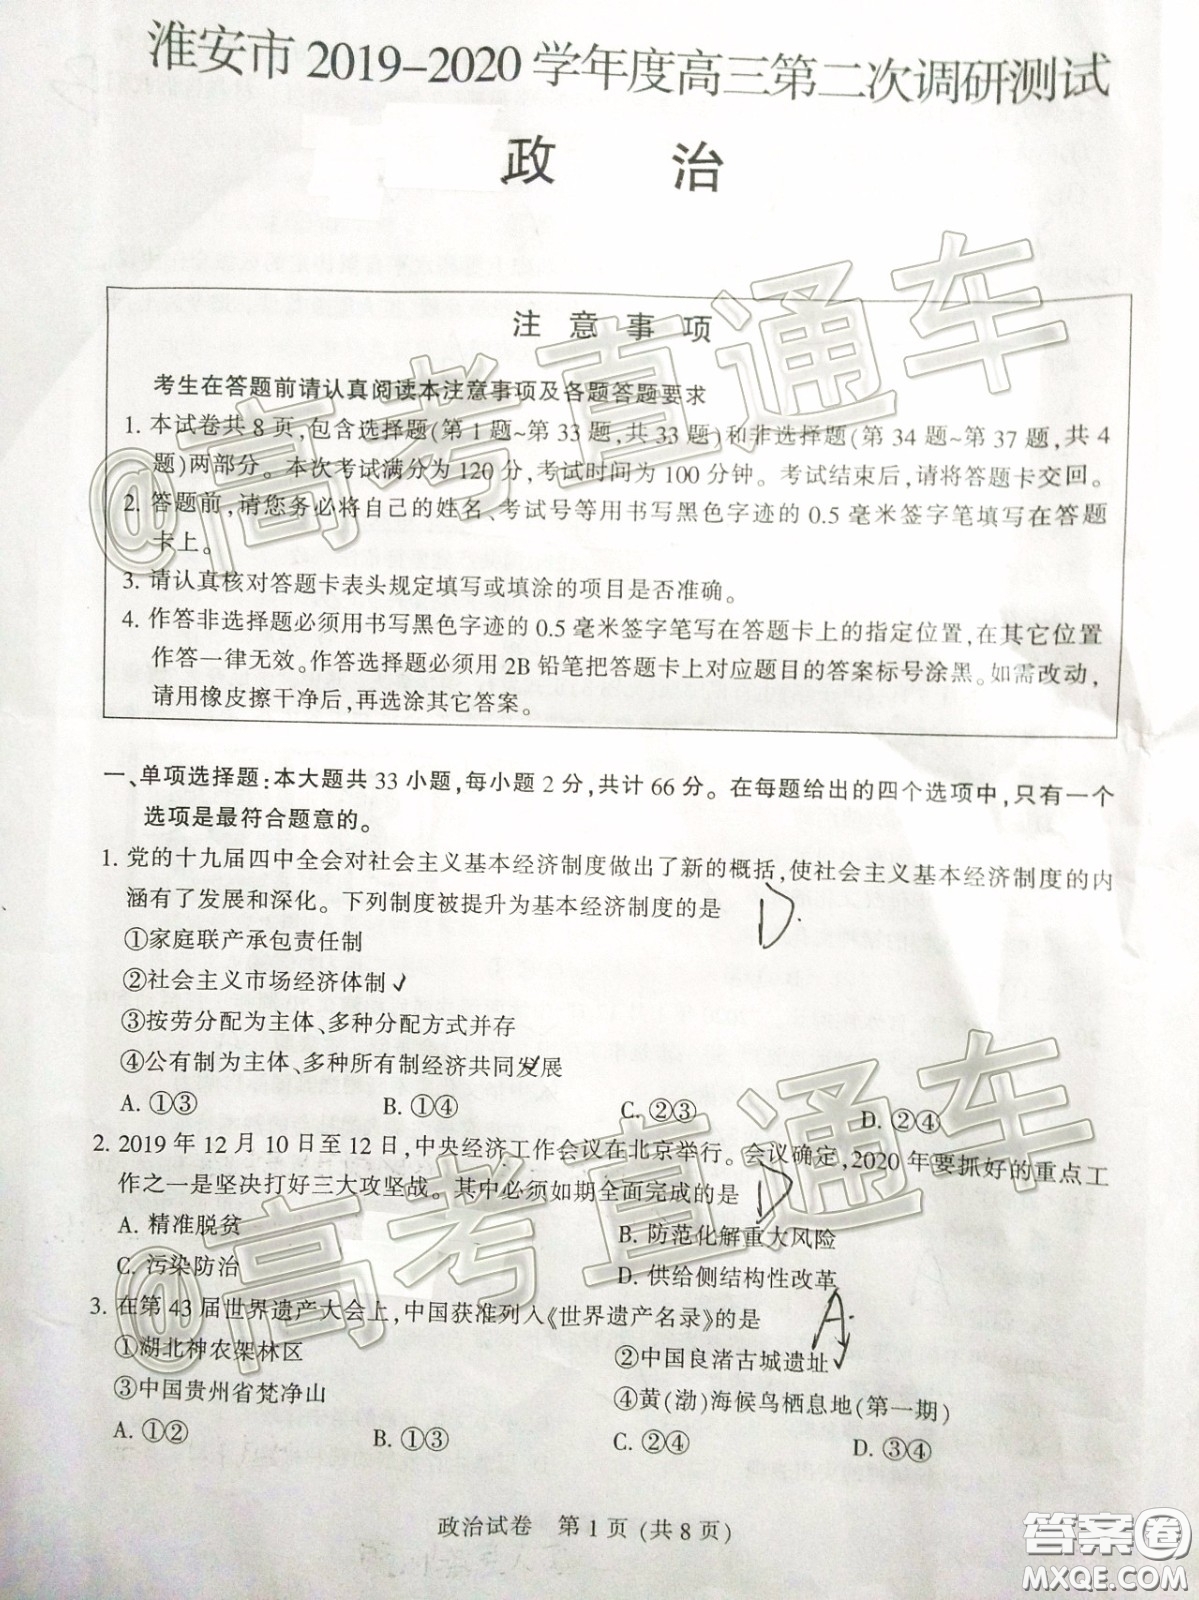 淮安市 2019-2020 学年度高三第二次调研测试
政 治
注 意 事 项
考生在答题前请认真阅读本注意事项及各题答题要求
1. 本试卷共 8 页,包含选择题(第 1 题~第 33 题,共 33 题)和非选择题(第 34 题~第 37 题,共 4
题)两部分。本次考试满分为 120 分,考试时间为 100 分钟。考试结束后,请将答题卡交回。
2. 答题前,请您务必将自己的姓名、考试号等用书写黑色字迹的 0.5 毫米签字笔填写在答题
卡上。
3. 请认真核对答题卡表头规定填写或填涂的项目是否准确。
4. 作答非选择题必须用书写黑色字迹的 0.5 毫米签字笔写在答题卡上的指定位置,在其它位置
作答一律无效。作答选择题必须用 2B 铅笔把答题卡上对应题目的答案标号涂黑。如需改动,
请用橡皮擦干净后,再选涂其它答案。
@高考直通车
一、单项选择题:本大题共 33 小题,每小题 2 分,共计 66 分。在每题给出的四个选项中,只有一个
选项是最符合题意的。
1. 党的十九届四中全会对社会主义基本经济制度做出了新的概括,使社会主义基本经济制度的内
涵有了发展和深化。下列制度被提升为基本经济制度的是 D.
①家庭联产承包责任制
②社会主义市场经济体制 ✓
③按劳分配为主体、多种分配方式并存
④公有制为主体、多种所有制经济共同发展 ✓
A. ①③ B. ①④ C. ②③ D. ②④
2. 2019 年 12 月 10 日至 12 日,中央经济工作会议在北京举行。会议确定,2020 年要抓好的重点工
作之一是坚决打好三大攻坚战。其中必须如期全面完成的是 D
A. 精准脱贫 B. 防范化解重大风险
C. 污染防治 D. 供给侧结构性改革
@高考直通车
3. 在第 43 届世界遗产大会上,中国获准列入《世界遗产名录》的是 A.
①湖北神农架林区 ②中国良渚古城遗址
③中国贵州省梵净山 ④黄(渤)海候鸟栖息地(第一期)
A. ①② B. ①③ C. ②④ D. ③④
政治试卷 第 1 页 (共 8 页)
答案圈
MXQE.COM